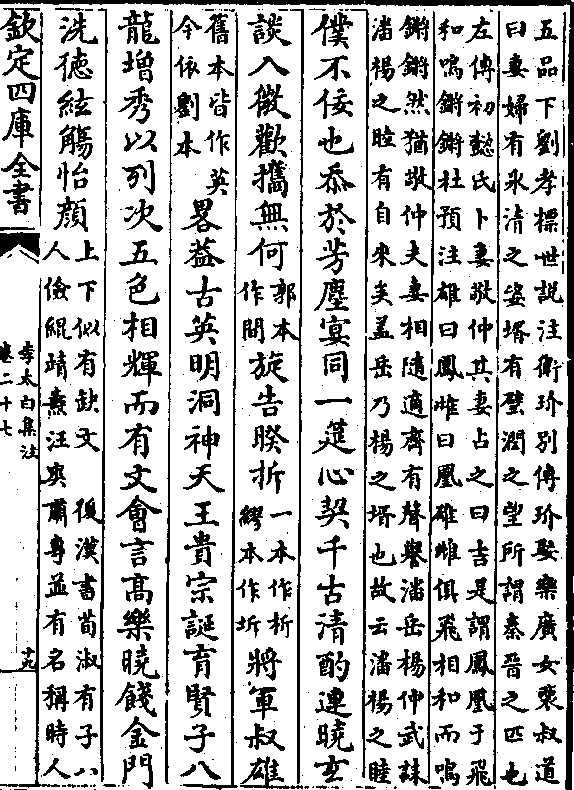 五品下劉孝標世說注衛玠别傳玠娶樂廣女裴叔道
曰妻婦有氷清之姿壻有璧潤之望所謂秦晉之匹也
左傳初懿氏卜妻敬仲其妻占之曰吉是謂鳳凰于飛
和鳴鏘鏘杜預注雄曰鳳雌曰凰雄雌俱飛相和而鳴
鏘鏘然猶敬仲夫妻相隨適齊有聲譽潘岳楊仲武誄
潘楊之睦有自來矣盖岳乃楊之壻也故云潘楊之睦
僕不佞也忝於芳塵宴同一筵心契千古清酌連曉玄
談入微歡攜無何郭本作間旋告暌拆一本作析繆本作坼將軍叔雄
舊本皆作英今依劉本畧葢古英明洞神天王貴宗誕育賢子八
龍增秀以列次五色相輝而有文會言高樂曉餞金門
洗德絃觴怡顔上下似有缺文 後漢書荀淑有子八人儉緄靖燾汪爽肅專並有名稱時人
欽定四庫全書
李太白集注
卷二十七
十九